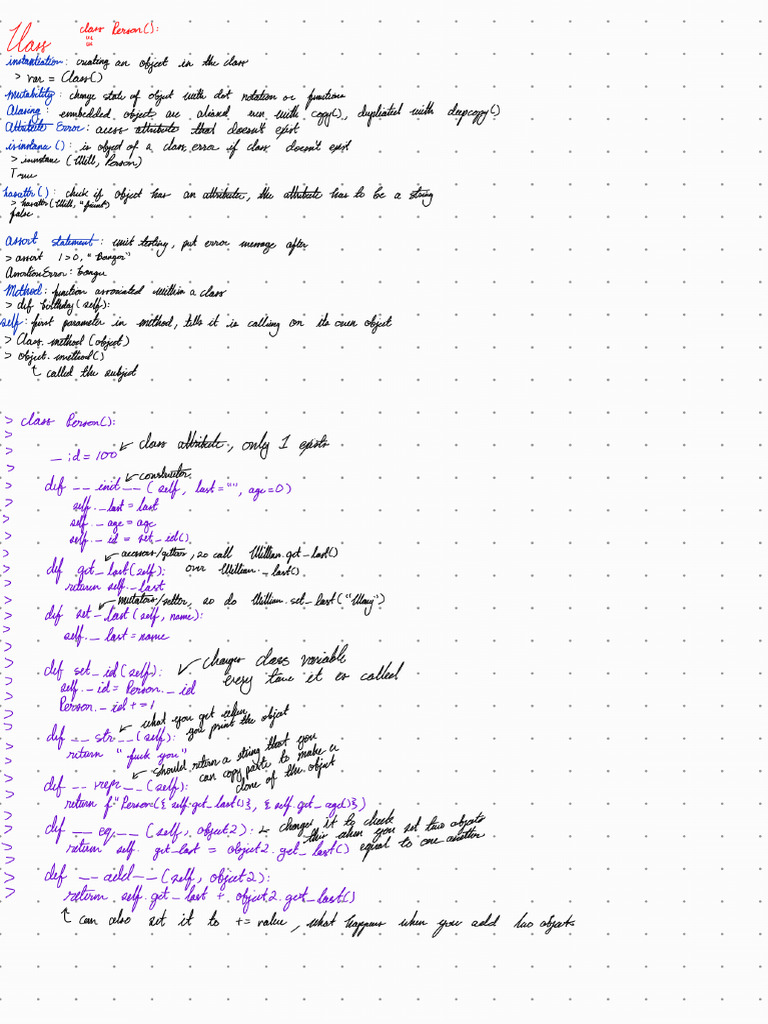 Class
class Person():
instantiation: creating an object in the class
> var = Class()
mutability: change state of object with dot notation or functions
Aliasing: embedded objects are aliased even with copy(), duplicated with deepcopy()
Attribute Error: access attribute that doesn't exist
isinstance(): is object of a class, error if class doesn't exist
> isinstance (Will, Person)
True
hasattr(): check if object has an attribute, the attribute has to be a string
> hasattr(Will, "
false
assert statement: unit testing, put error message after
> assort 1>0, "Bangor"
AssertionError:
Method: function associated within a class
> def birthday(self):
self: first parameter in method, tells it is calling on its own object
> Class.method(object)
> object.method()
called the subject
> class Person():
_id = 100
class attribute, only 1 exists
constructor
def __init__(self, last="", age=0)
self._last = last
self._age = age
self._id = set_id()
accessors/getters, so call William.get_last()
def get_last(self): over William._last()
return self._last
mutators/setter, so do William.set_last("
def set_last(self, name):
self._last = name
def set_id(self):
changes class variable
every time it is called
self._id = Person._id
Person._id += 1
what you get when
you print the object
def __str__(self):
return "fuck you"
should return a string that you
can copy paste to make a
clone of the object
def __repr__(self):
return f"Person({self.get_last()}, {self.get_age()})
def __eq__(self, object2):
changes it to check
this when you set two objects
equal to one another
return self.get_last = object2.get_last()
def __add__(self, object2):
return self.get_last + object2.get_last()
can also set it to += value, what happens when you add two objects